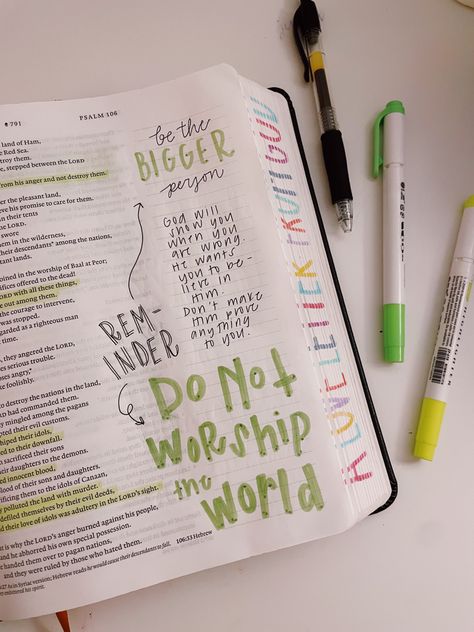 PSALM 106
land of Ham,
Red Sea.
troy them.
, stepped between the LORD
from his anger and not destroy them.
er the pleasant land,
eve his promise to care for them.
in their tents
e LORD.
swore
em in the wilderness,
their descendants* among the nations,
lands.
oined in the worship of Baal at Peor;
ifices offered to the dead!
LORD with all these things,
e out among them.
the courage to intervene,
was stopped.
egarded as a righteous man
time.
, they angered the LORD,
oses serious trouble.
oses angry,*
e foolishly.
to destroy the nations in the land,
D had commanded them.
y mingled among the pagans
pted their evil customs.
hiped their idols,
to their downfall.
sacrificed their sons
ir daughters to the demons.
innocent blood,
blood of their sons and daughters.
ificing them to the idols of Canaan,
y polluted the land with murder.
defiled themselves by their evil deeds,
nd their love of idols was adultery in the LORD's sight.
at is why the LORD's anger burned against his people,
and he abhorred his own special possession.
handed them over to pagan nations,
and they were ruled by those who hated them.
as in Syriac version; Hebrew reads he would cause their descendants to fall. 106:33 Hebrew
embittered his spirit.
be the
BIGGER
person
God will
show you
when you
are wrong.
He wants
you to be-
lieve in
Him.
Don't make
Him prove
anything
to you.
REM-
INDER
Do Not
Worship
the
World
A LOVE LETTER FROM GOD